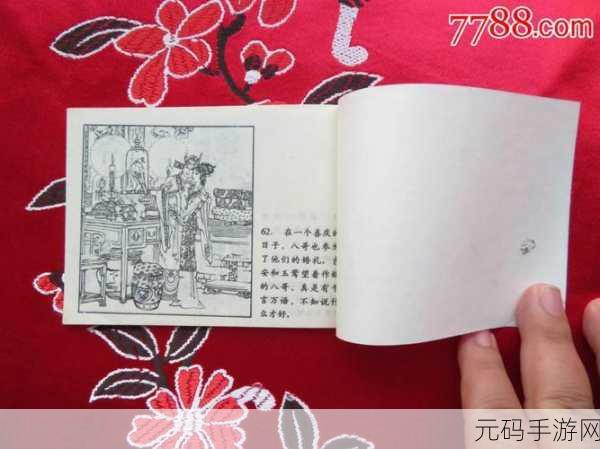 7788.com
62. 在一个喜庆的
日子，八哥也参加
了他们的婚礼，
安和玉莺望着作
的八哥，真是有千
言万语，不知说什
么才好。
元码手游网